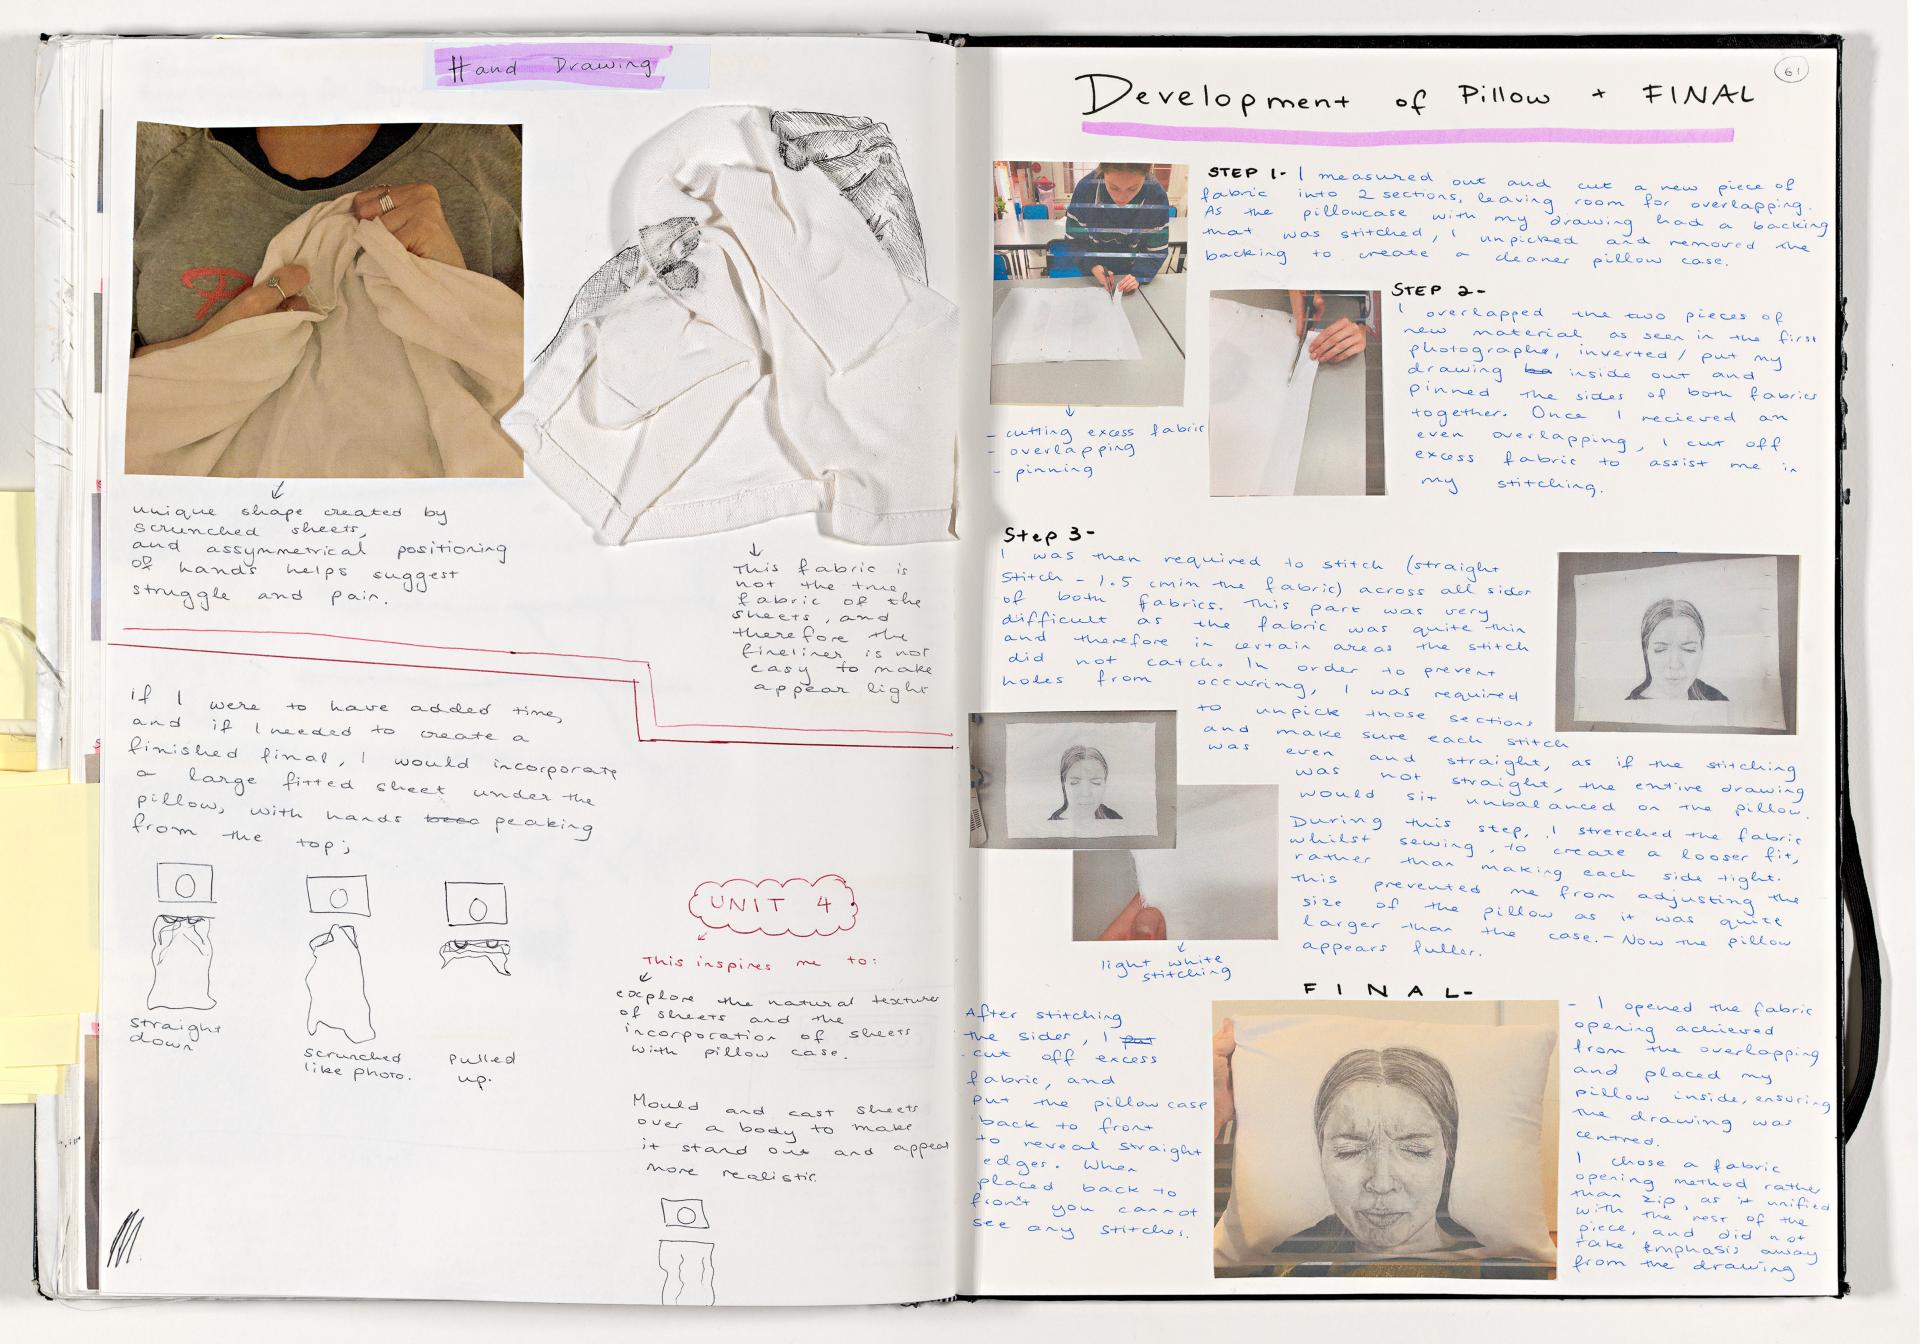 Hand Drawing
unique shape created by
scrunched sheets,
and assymetrical positioning
of hands helps suggest
struggle and pain.
This fabric is
not the true
fabric of the
sheets, and
therefore the
fineliner is not
easy to make
appear light
if I were to have added time,
and if I needed to create a
finished final, I would incorporate
a large fitted sheet under the
pillow, with hands peaking
from the top;
straight
down
scrunched
like photo.
pulled
up.
UNIT 4
This inspires me to:
explore the natural textures
of sheets and the
incorporation of sheets
with pillow case.
Mould and cast sheets
over a body to make
it stand out and appear
more realistic.
61
Development of Pillow + FINAL
STEP 1- I measured out and cut a new piece of
fabric into 2 sections, leaving room for overlapping.
As the pillowcase with my drawing had a backing
that was stitched, I unpicked and removed the
backing to create a cleaner pillow case.
- cutting excess fabric
- overlapping
- pinning
STEP 2-
I overlapped the two pieces of
new material as seen in the first
photographs, inverted / put my
drawing inside out and
pinned the sides of both fabrics
together. Once I recieved an
even overlapping, I cut off
excess fabric to assist me in
my stitching.
Step 3-
I was then required to stitch (straight
stitch - 1.5 cm in the fabric) across all sides
of both fabrics. This part was very
difficult as the fabric was quite thin
and therefore in certain areas the stitch
did not catch. In order to prevent
holes from occuring, I was required
to unpick those sections
and make sure each stitch
was even and straight, as if the stitching
was not straight, the entire drawing
would sit unbalanced on the pillow.
During this step, I stretched the fabric
whilst sewing, to create a looser fit,
rather than making each side tight.
this prevented me from adjusting the
size of the pillow as it was quite
larger than the case. - Now the pillow
appears fuller.
light white
stitching
FINAL-
After stitching
the sides, I put
cut off excess
fabric, and
put the pillowcase
back to front
to reveal straight
edges. When
placed back to
front you cannot
see any stitches.
- I opened the fabric
opening achieved
from the overlapping
and placed my
pillow inside, ensuring
the drawing was
centred.
I chose a fabric
opening method rather
than zip, as it unified
with the rest of the
piece, and did not
take emphasis away
from the drawing